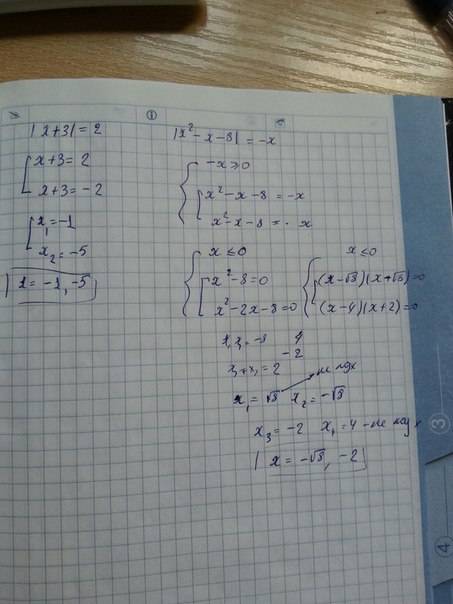 |x+3| = 2
x+3 = 2
x+3 = -2
x₁ = -1
x₂ = -5
x = -1, -5
|x²-x-8| = -x
-x ≥ 0
x²-x-8 = -x
x²-x-8 = x
x ≤ 0
x²-8=0
x²-2x-8=0
x ≤ 0
(x-√8)(x+√8)=0
(x-4)(x+2)=0
x₁x₂ = -8 4
-2
x₁+x₂ = 2
x₁ = √8 x₂ = -√8
не подх
x₃ = -2 x₄ = 4 - не подх
x = -√8, -2
3
4